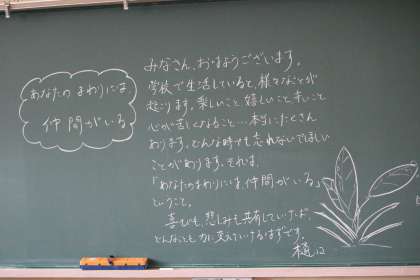 あなたのまわりには、
仲間がいる
みなさん、おはようございます。
学校で生活していると、様々なことが
起こります。楽しいこと、嬉しいこと、辛いこと
心が苦しくなること…本当にたくさん
あります。どんな時でも忘れないでほしい
ことがあります。それは、
「あなたのまわりには、仲間がいる」
ということ。
喜びも、悲しみも共有していけば、
どんなことも力に変えていけるはずです。